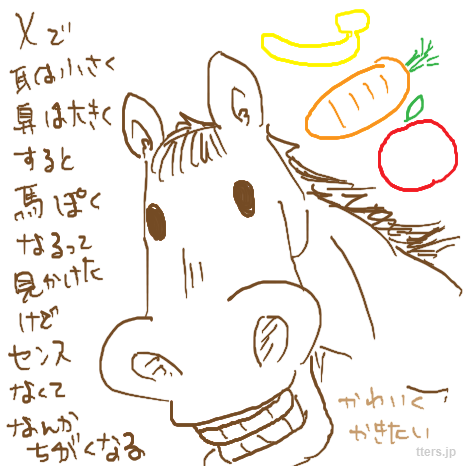 Xで
耳は小さく
鼻は大きく
すると
馬ぽく
なるって
見かけた
けど
センス
なくて
なんか
ちがくなる
かわいく
かきたい
tters.jp